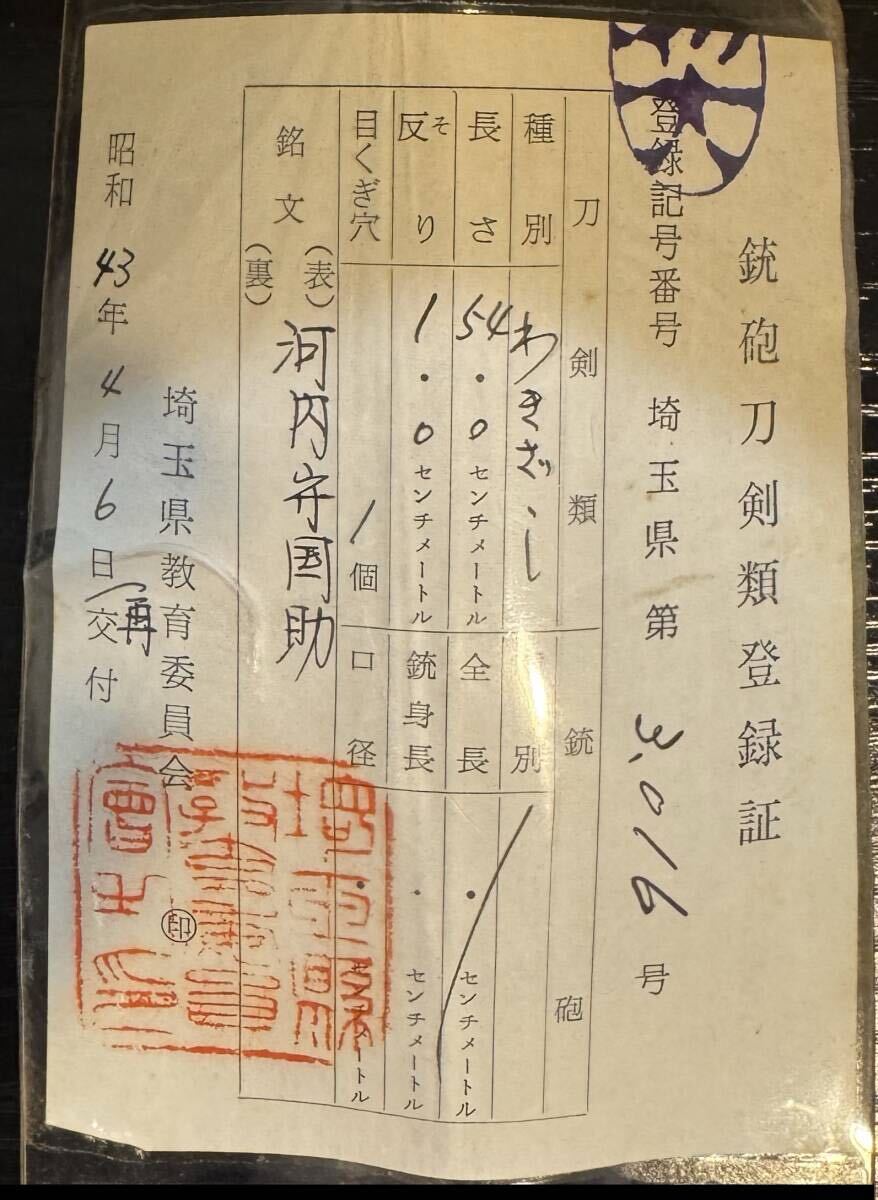 銃砲刀剣類登録証
登録記号番号 埼玉県第 3,016 号
刀剣類 銃砲
種別 わきざし 別
長さ 54.0 センチメートル 全長 . センチメートル
反り そ 1.0 センチメートル 銃身長 . センチメートル
目くぎ穴 1個 口径 . センチメートル
銘文 (表) 河内守国助
(裏)
埼玉県教育委員会 印
昭和 43年 4月 6日 (再交付